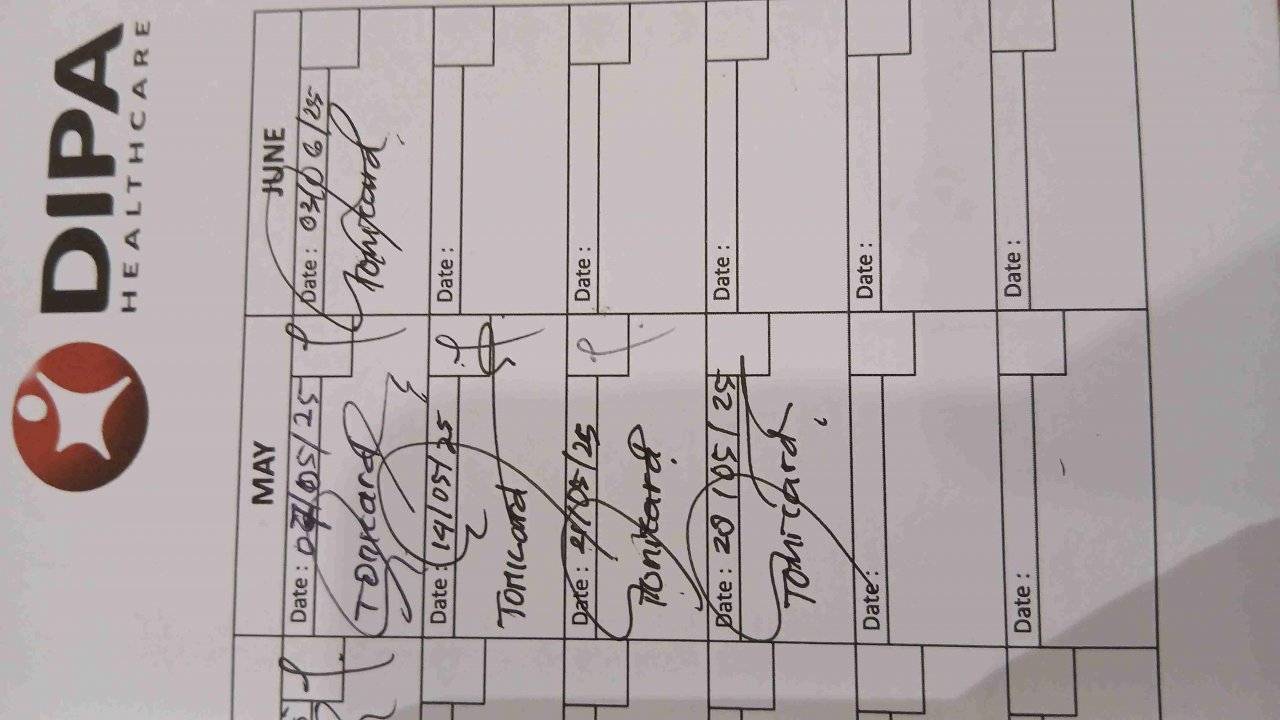 DIPA
HEALTHCARE
MAY JUNE
Date : 07/05/25 Date : 03/06/25
Tomicard Tomicard
Date : 14/05/25 Date :
Tomicard
Date : 21/05/25 Date :
Tomicard
Date : 28/05/25 Date :
Tomicard
Date : Date :
Date : Date :